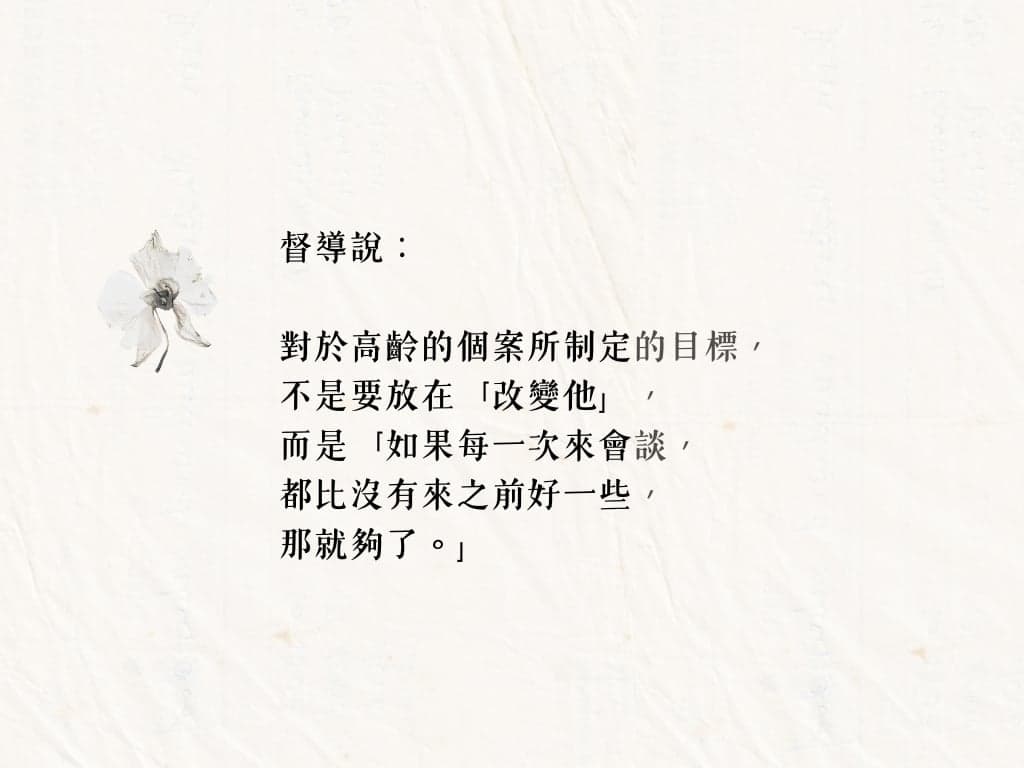 督導說：
對於高齡的個案所制定的目標，
不是要放在「改變他」，
而是「如果每一次來會談，
都比沒有來之前好一些，
那就夠了。」